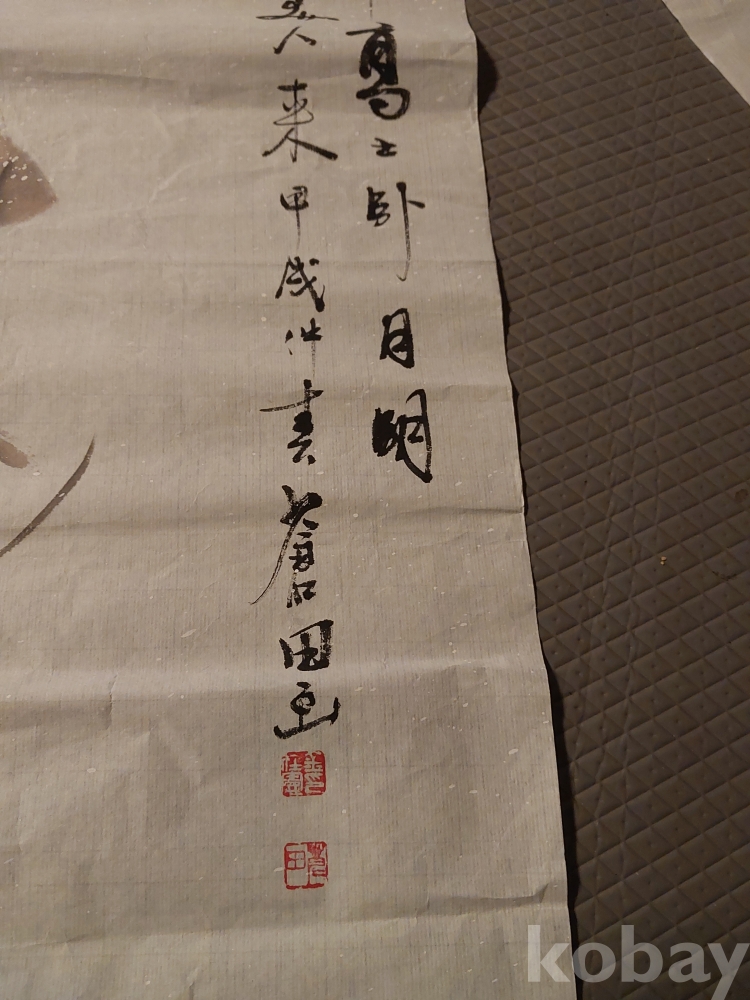 高士卧月明
美人来甲戌仲春蒼田画
kobay